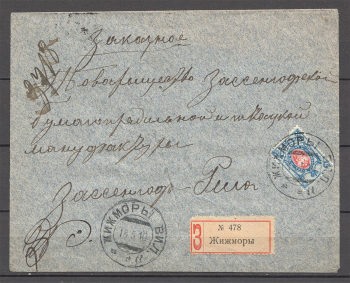 Заказное
Товарищество Зассенгофской
бумагопрядильной и ткацкой
мануфактуры
Зассенгоф-Рига
ЖИЖМОРЫ
ЖИЖМОРЫ ВИЛ.
З
№ 478
Жижморы